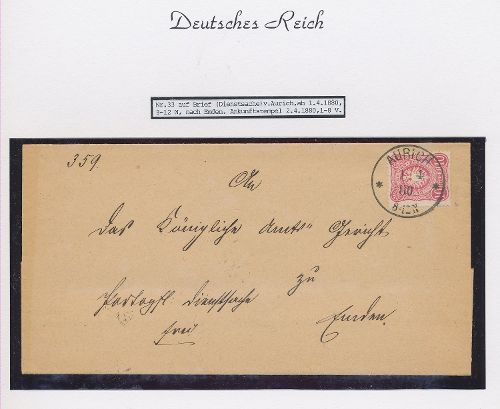 Deutsches Reich
Nr.33 auf Brief (Dienstsache)v.Aurich,wb 1.4.1880,
8-12 N, nach Emden. Ankunftstempel 2.4.1880,1-8 V.
359
AURICH
1 4
80
8-12 N
An
Das Königliche Amts Gericht
zu
Portopfl. Dienstsache
Emden.
frei